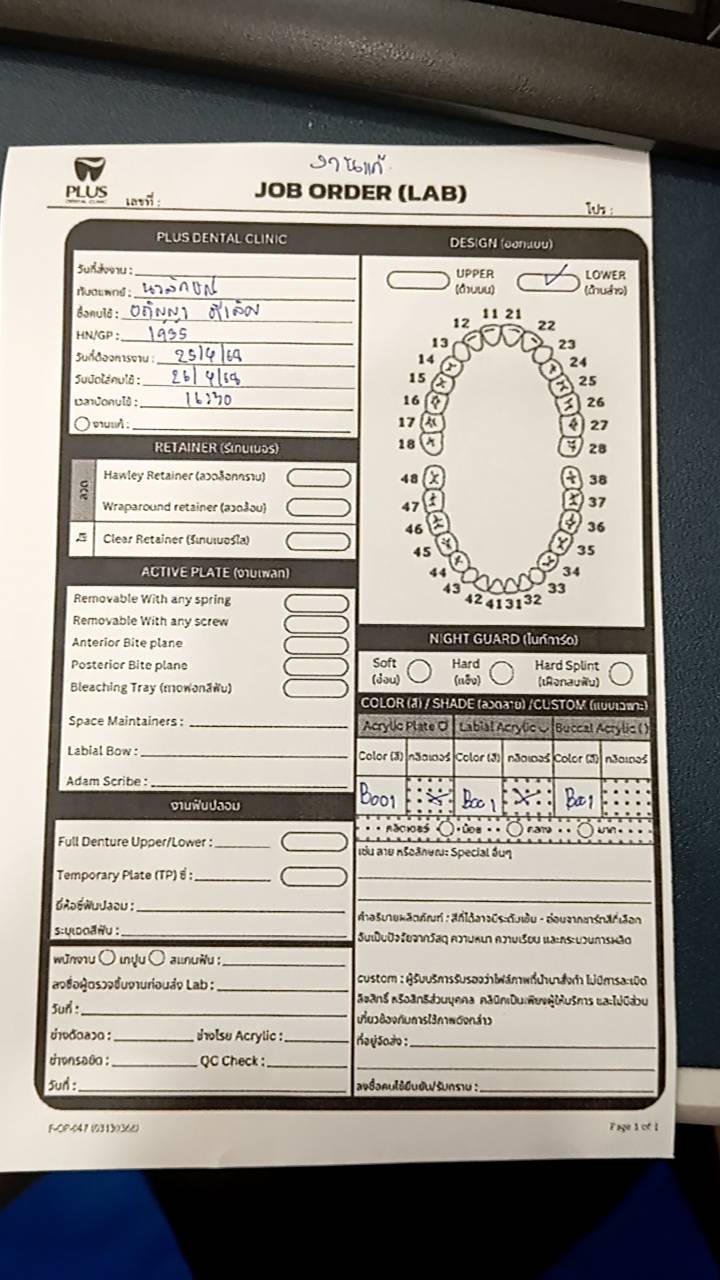 งานแก้
PLUS
DENTAL CLINIC
เลขที่ :
JOB ORDER (LAB)
โปร :
PLUS DENTAL CLINIC
วันที่ส่งงาน :
ทันตแพทย์ :
ชื่อคนไข้ :
HN/GP : 1955
วันที่ต้องการงาน : 25/4/68
วันนัดใส่คนไข้ : 26/4/68
เวลานัดคนไข้ : 16:30
งานแก้ :
RETAINER (รีเทนเนอร์)
ลวด
Hawley Retainer (ลวดล็อกกราม)
Wraparound retainer (ลวดล้อม)
Clear Retainer (รีเทนเนอร์ใส)
ACTIVE PLATE (งานเพลท)
Removable With any spring
Removable With any screw
Anterior Bite plane
Posterior Bite plane
Bleaching Tray (ถาดฟอกสีฟัน)
Space Maintainers :
Labial Bow :
Adam Scribe :
งานฟันปลอม
Full Denture Upper/Lower :
Temporary Plate (TP) ซี่ :
ยี่ห้อซี่ฟันปลอม :
ระบุเฉดสีฟัน :
พนักงาน เทปูน สแกนฟัน :
ลงชื่อผู้ตรวจชิ้นงานก่อนส่ง Lab :
วันที่ :
ช่างดัดลวด : ช่างโรย Acrylic :
ช่างกรอขัด : QC Check :
วันที่ :
DESIGN (ออกแบบ)
UPPER (ด้านบน)
LOWER (ด้านล่าง)
11 21
12 22
13 23
14 24
15 25
16 26
17 27
18 28
48 38
47 37
46 36
45 35
44 34
43 33
42 41 31 32
NIGHT GUARD (ไนท์การ์ด)
Soft (อ่อน) Hard (แข็ง) Hard Splint (เฝือกสบฟัน)
COLOR (สี) / SHADE (ลวดลาย) /CUSTOM (แบบเฉพาะ)
Acrylic Plate Labial Acrylic Buccal Acrylic ( )
Color (สี) กลิตเตอร์ Color (สี) กลิตเตอร์ Color (สี) กลิตเตอร์
B001 X B001 X B001
กลิตเตอร์ น้อย กลาง มาก
เช่น ลาย หรือลักษณะ Special อื่นๆ
คำอธิบายผลิตภัณฑ์ : สีที่ได้อาจมีระดับเข้ม - อ่อนจากชาร์ทสีที่เลือก
อันเป็นปัจจัยจากวัสดุ ความหนา ความเรียบ และกระบวนการผลิต
custom : ผู้รับบริการรับรองว่าไฟล์ภาพที่นำมาสั่งทำ ไม่มีการละเมิด
ลิขสิทธิ์ หรือสิทธิส่วนบุคคล คลินิกเป็นเพียงผู้ให้บริการ และไม่มีส่วน
เกี่ยวข้องกับการใช้ภาพดังกล่าว
ที่อยู่จัดส่ง :
ลงชื่อคนไข้ยืนยัน/รับทราบ :
F-OP-047 (03130366)
Page 1 of 1